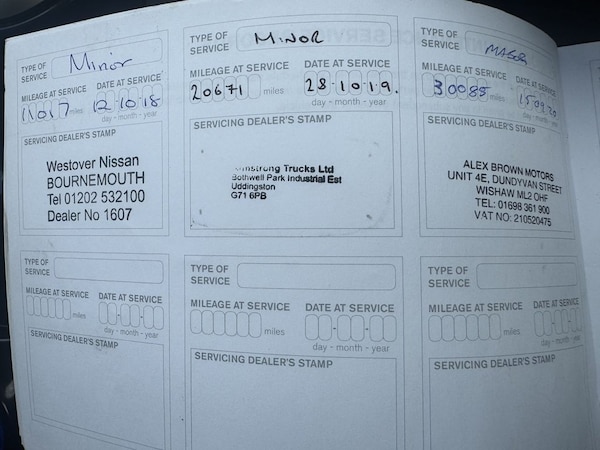 TYPE OF SERVICE Minor
MILEAGE AT SERVICE DATE AT SERVICE
11017 miles 12-10-18
day - month - year
SERVICING DEALER'S STAMP
Westover Nissan
BOURNEMOUTH
Tel 01202 532100
Dealer No 1607
TYPE OF SERVICE MINOR
MILEAGE AT SERVICE DATE AT SERVICE
20671 miles 28-10-19.
day - month - year
SERVICING DEALER'S STAMP
Trucks Ltd
Bothwell Park Industrial Est
Uddingston
G71 6PB
TYPE OF SERVICE MAJOR
MILEAGE AT SERVICE DATE AT SERVICE
30085 miles 15-09-20
day - month - year
SERVICING DEALER'S STAMP
ALEX BROWN MOTORS
UNIT 4E, DUNDYVAN STREET
WISHAW ML2 OHF
TEL: 01698 361 900
VAT NO: 210520475
TYPE OF SERVICE
MILEAGE AT SERVICE DATE AT SERVICE
miles
day - month - year
SERVICING DEALER'S STAMP
TYPE OF SERVICE
MILEAGE AT SERVICE DATE AT SERVICE
miles
day - month - year
SERVICING DEALER'S STAMP
TYPE OF SERVICE
MILEAGE AT SERVICE DATE AT SERVICE
miles
day - month - year
SERVICING DEALER'S STAMP